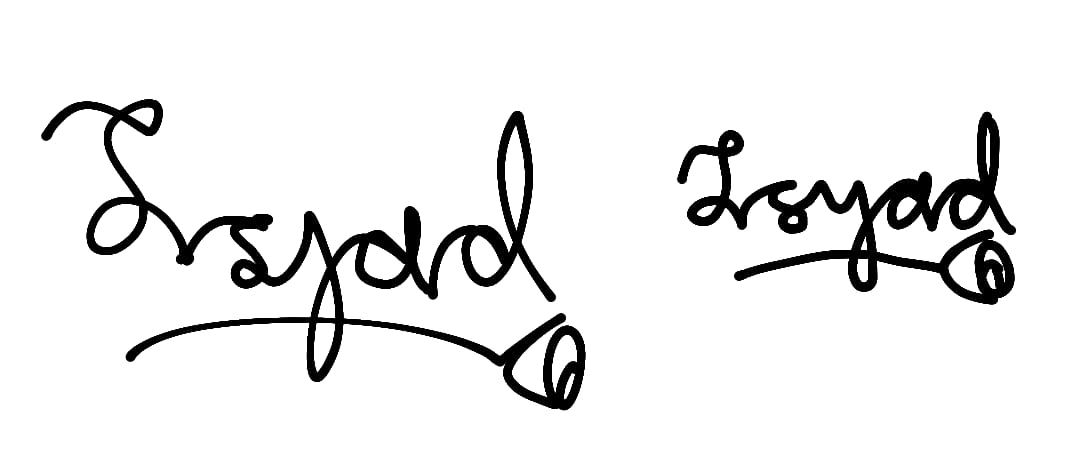 Irsyad Irsyad